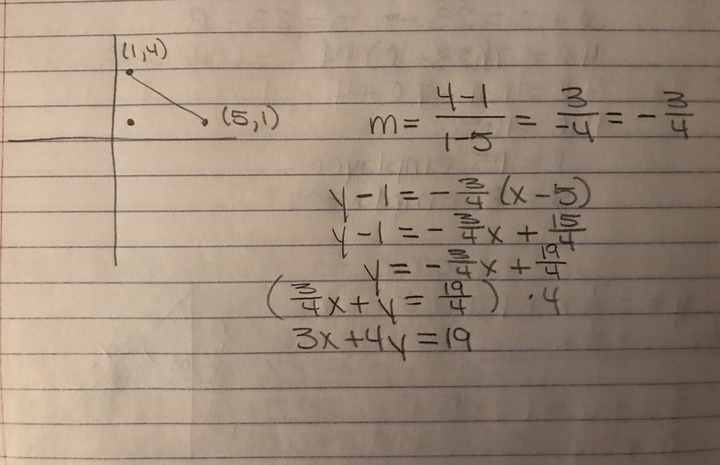 (1,4)
(5,1)
m = \frac{4-1}{1-5} = \frac{3}{-4} = -\frac{3}{4}
y - 1 = -\frac{3}{4}(x - 5)
y - 1 = -\frac{3}{4}x + \frac{15}{4}
y = -\frac{3}{4}x + \frac{19}{4}
(\frac{3}{4}x + y = \frac{19}{4}) · 4
3x + 4y = 19